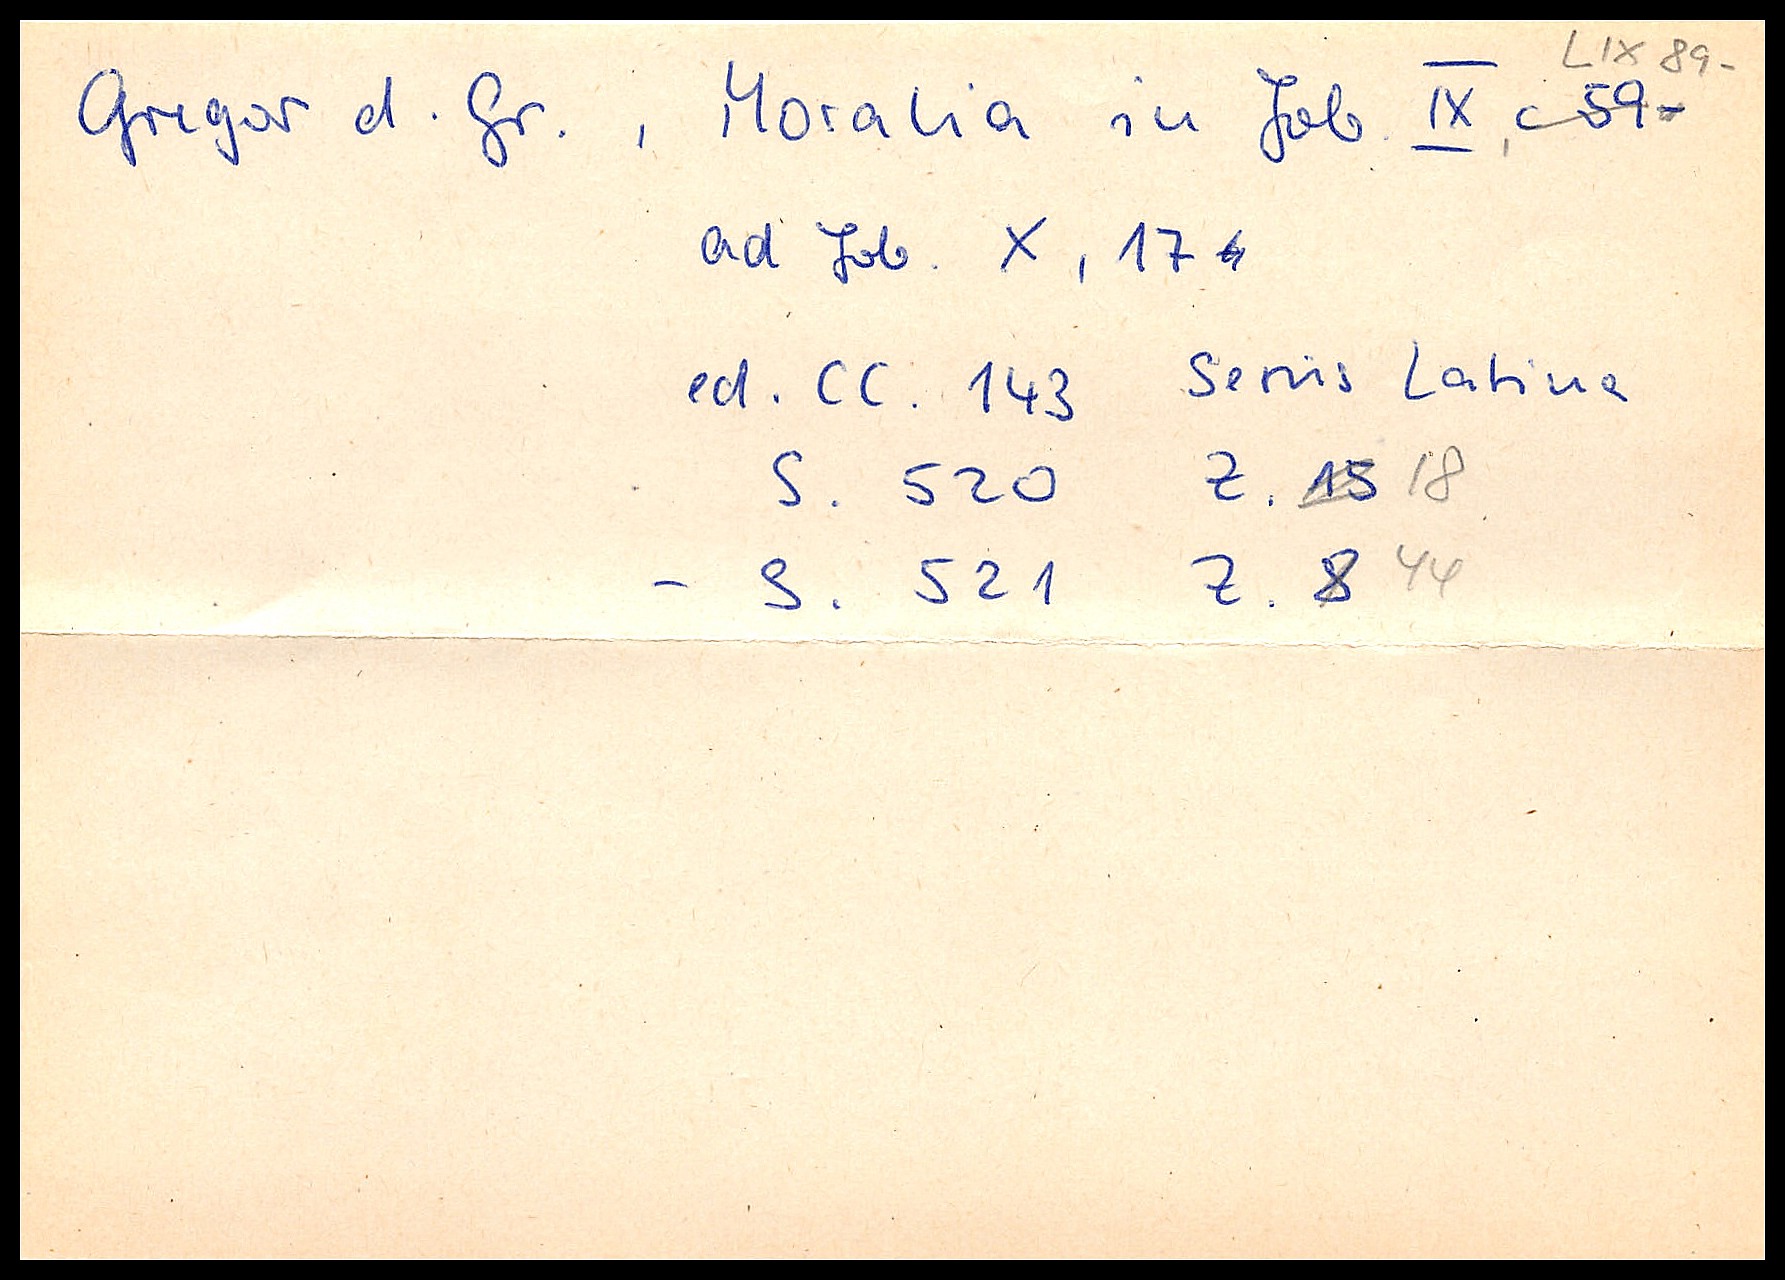 LIX 89-
Gregor d. Gr., Moralia in Job. IX, c 59-
ad Job. X, 17
ed. CC. 143 Series Latina
S. 520 Z. 15 18
- S. 521 Z. 8 44